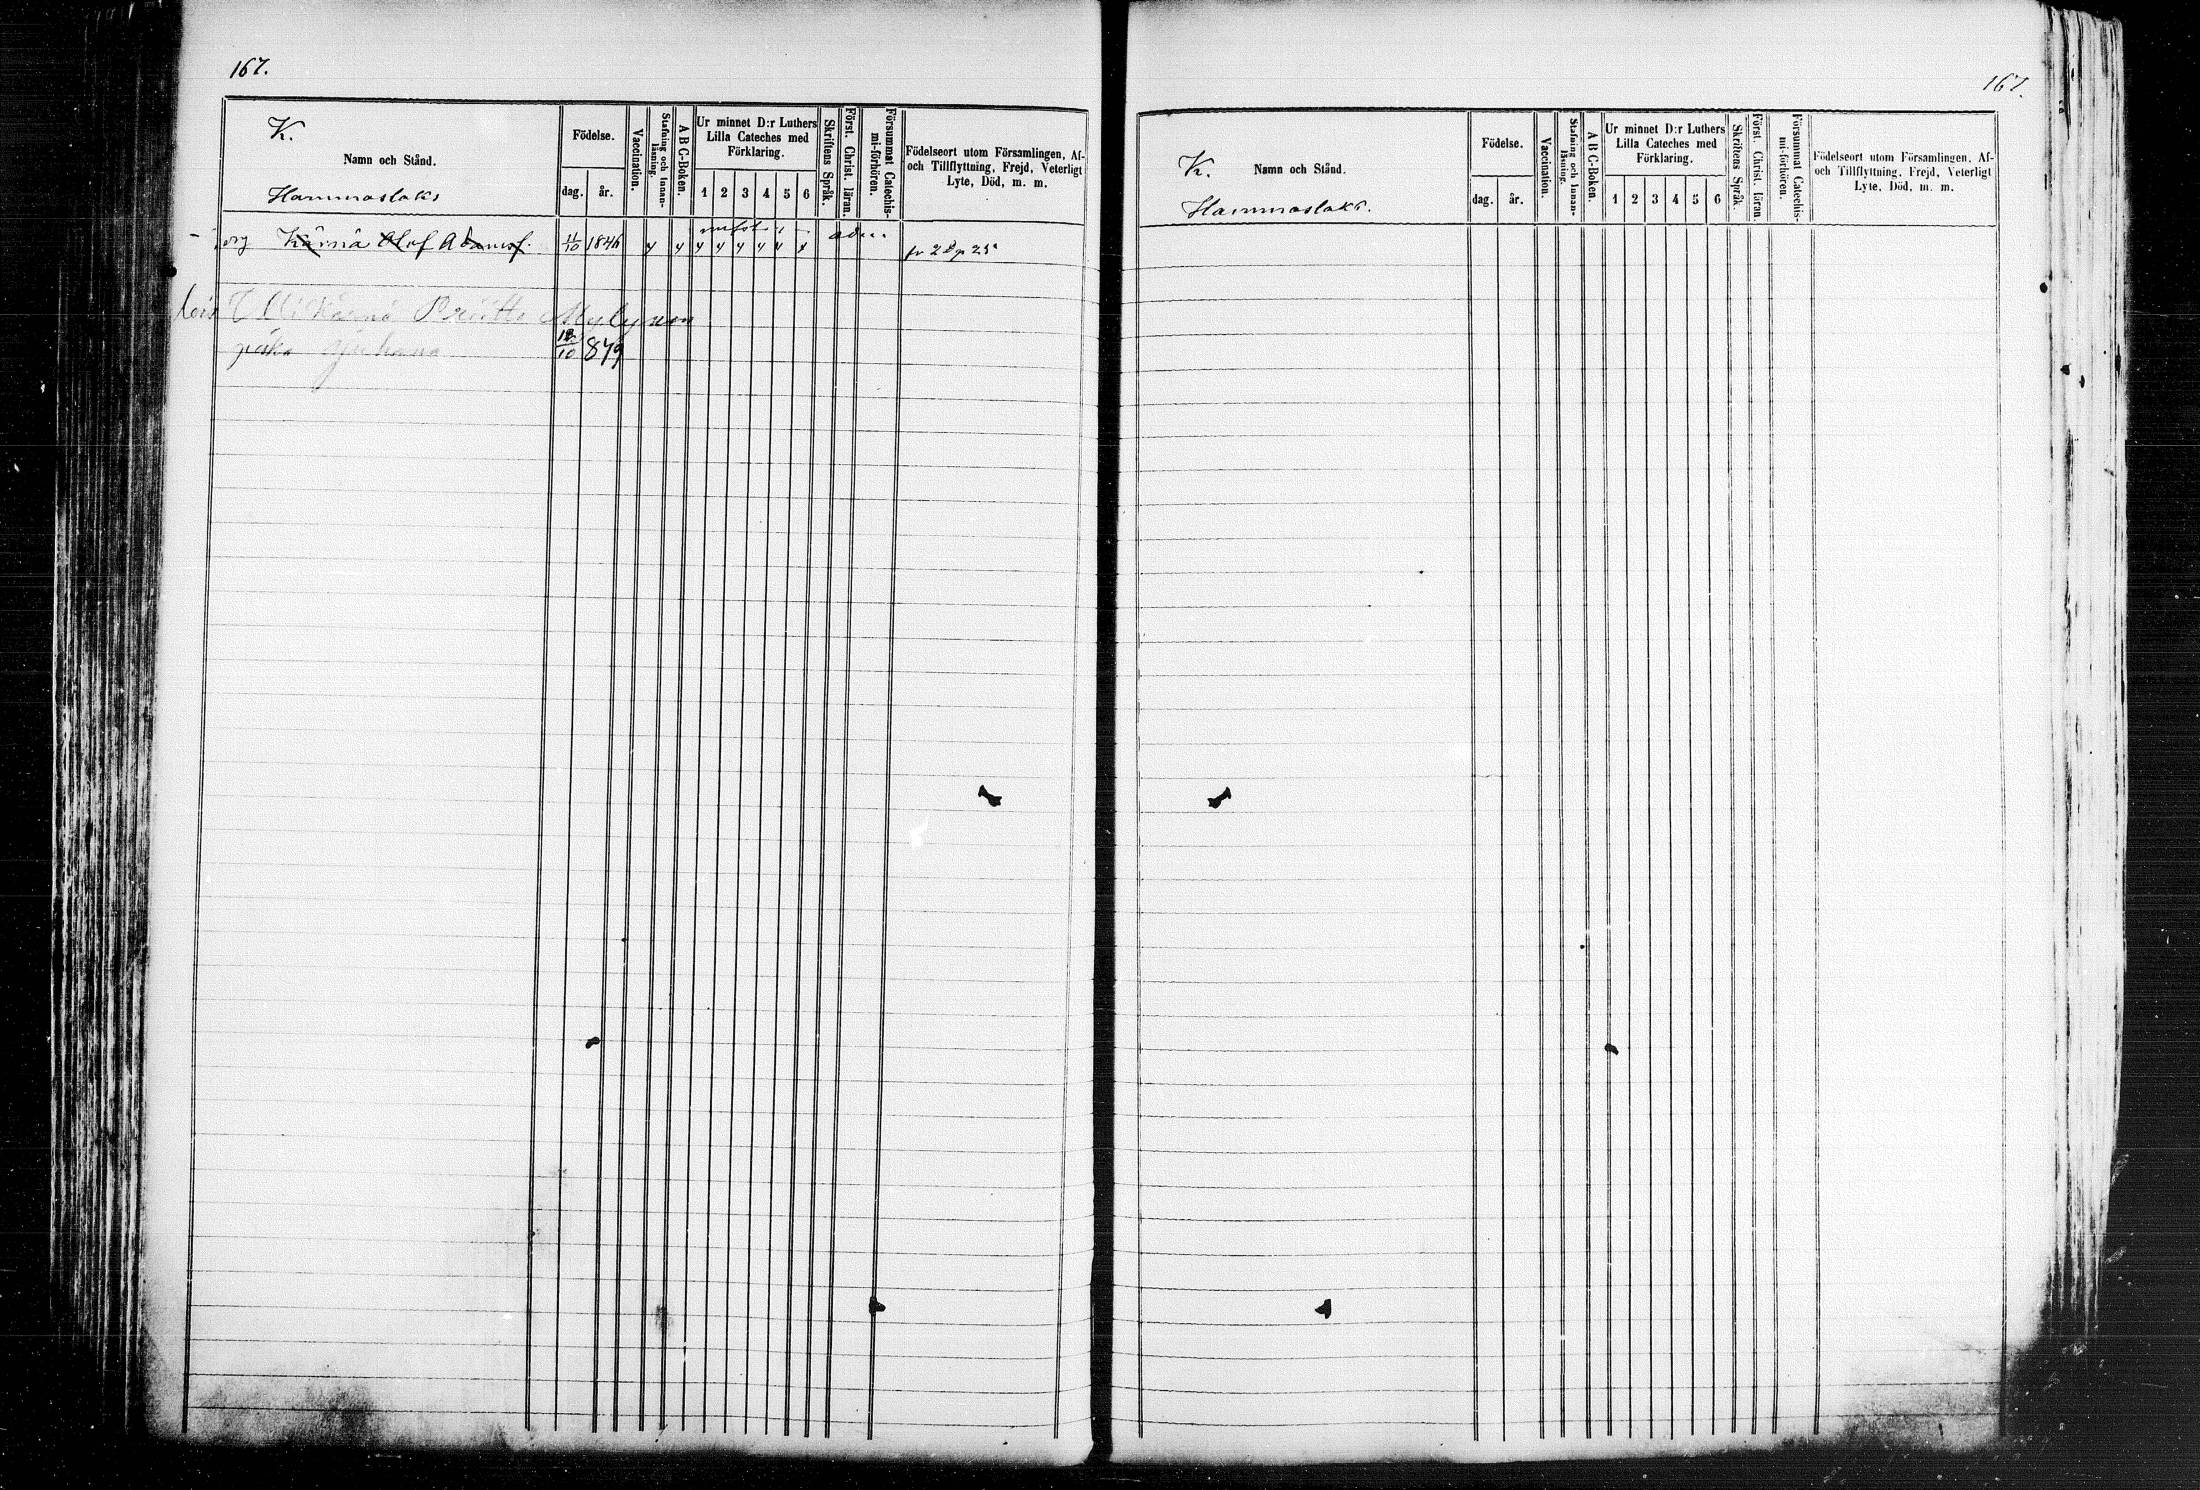 167.
K.
Namn och Stånd.
Hammaslaks
Födelse.
dag. år.
Vaccination.
Stafning och Innanläsning.
A B C-Boken.
Ur minnet D:r Luthers
Lilla Cateches med
Förklaring.
1 2 3 4 5 6
Skriftens Språk.
Först. Christ. läran.
Försummat Catechismi-förhören.
Födelseort utom Församlingen, Af-
och Tillflyttning, Frejd, Veterligt
Lyte, Död, m. m.
Kärnä Olof Adamsf. 11/10 1846
Kärnä Mylynen
10 879
167.
K.
Namn och Stånd.
Hammaslaks.
Födelse.
dag. år.
Vaccination.
Stafning och Innanläsning.
A B C-Boken.
Ur minnet D:r Luthers
Lilla Cateches med
Förklaring.
1 2 3 4 5 6
Skriftens Språk.
Först. Christ. läran.
Försummat Catechismi-förhören.
Födelseort utom Församlingen, Af-
och Tillflyttning, Frejd, Veterligt
Lyte, Död, m. m.